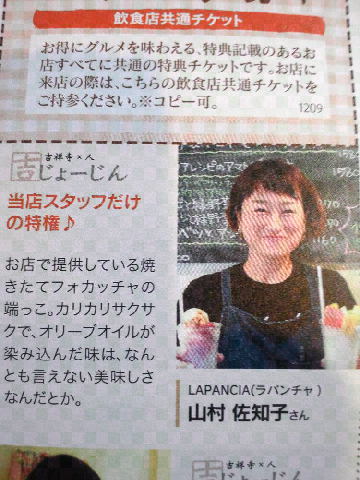 飲食店共通チケット
お得にグルメを味わえる、特典記載のあるお
店すべてに共通の特典チケットです。お店に
来店の際は、こちらの飲食店共通チケットを
ご持参ください。※コピー可。
1209
吉祥寺×人
吉じょーじん
当店スタッフだけ
の特権♪
お店で提供している焼
きたてフォカッチャの
端っこ。カリカリサクサ
クで、オリーブオイルが
染み込んだ味は、なん
とも言えない美味しさ
なんだとか。
LAPANCIA(ラパンチャ)
山村 佐知子さん
吉祥寺×人
吉じょーじん